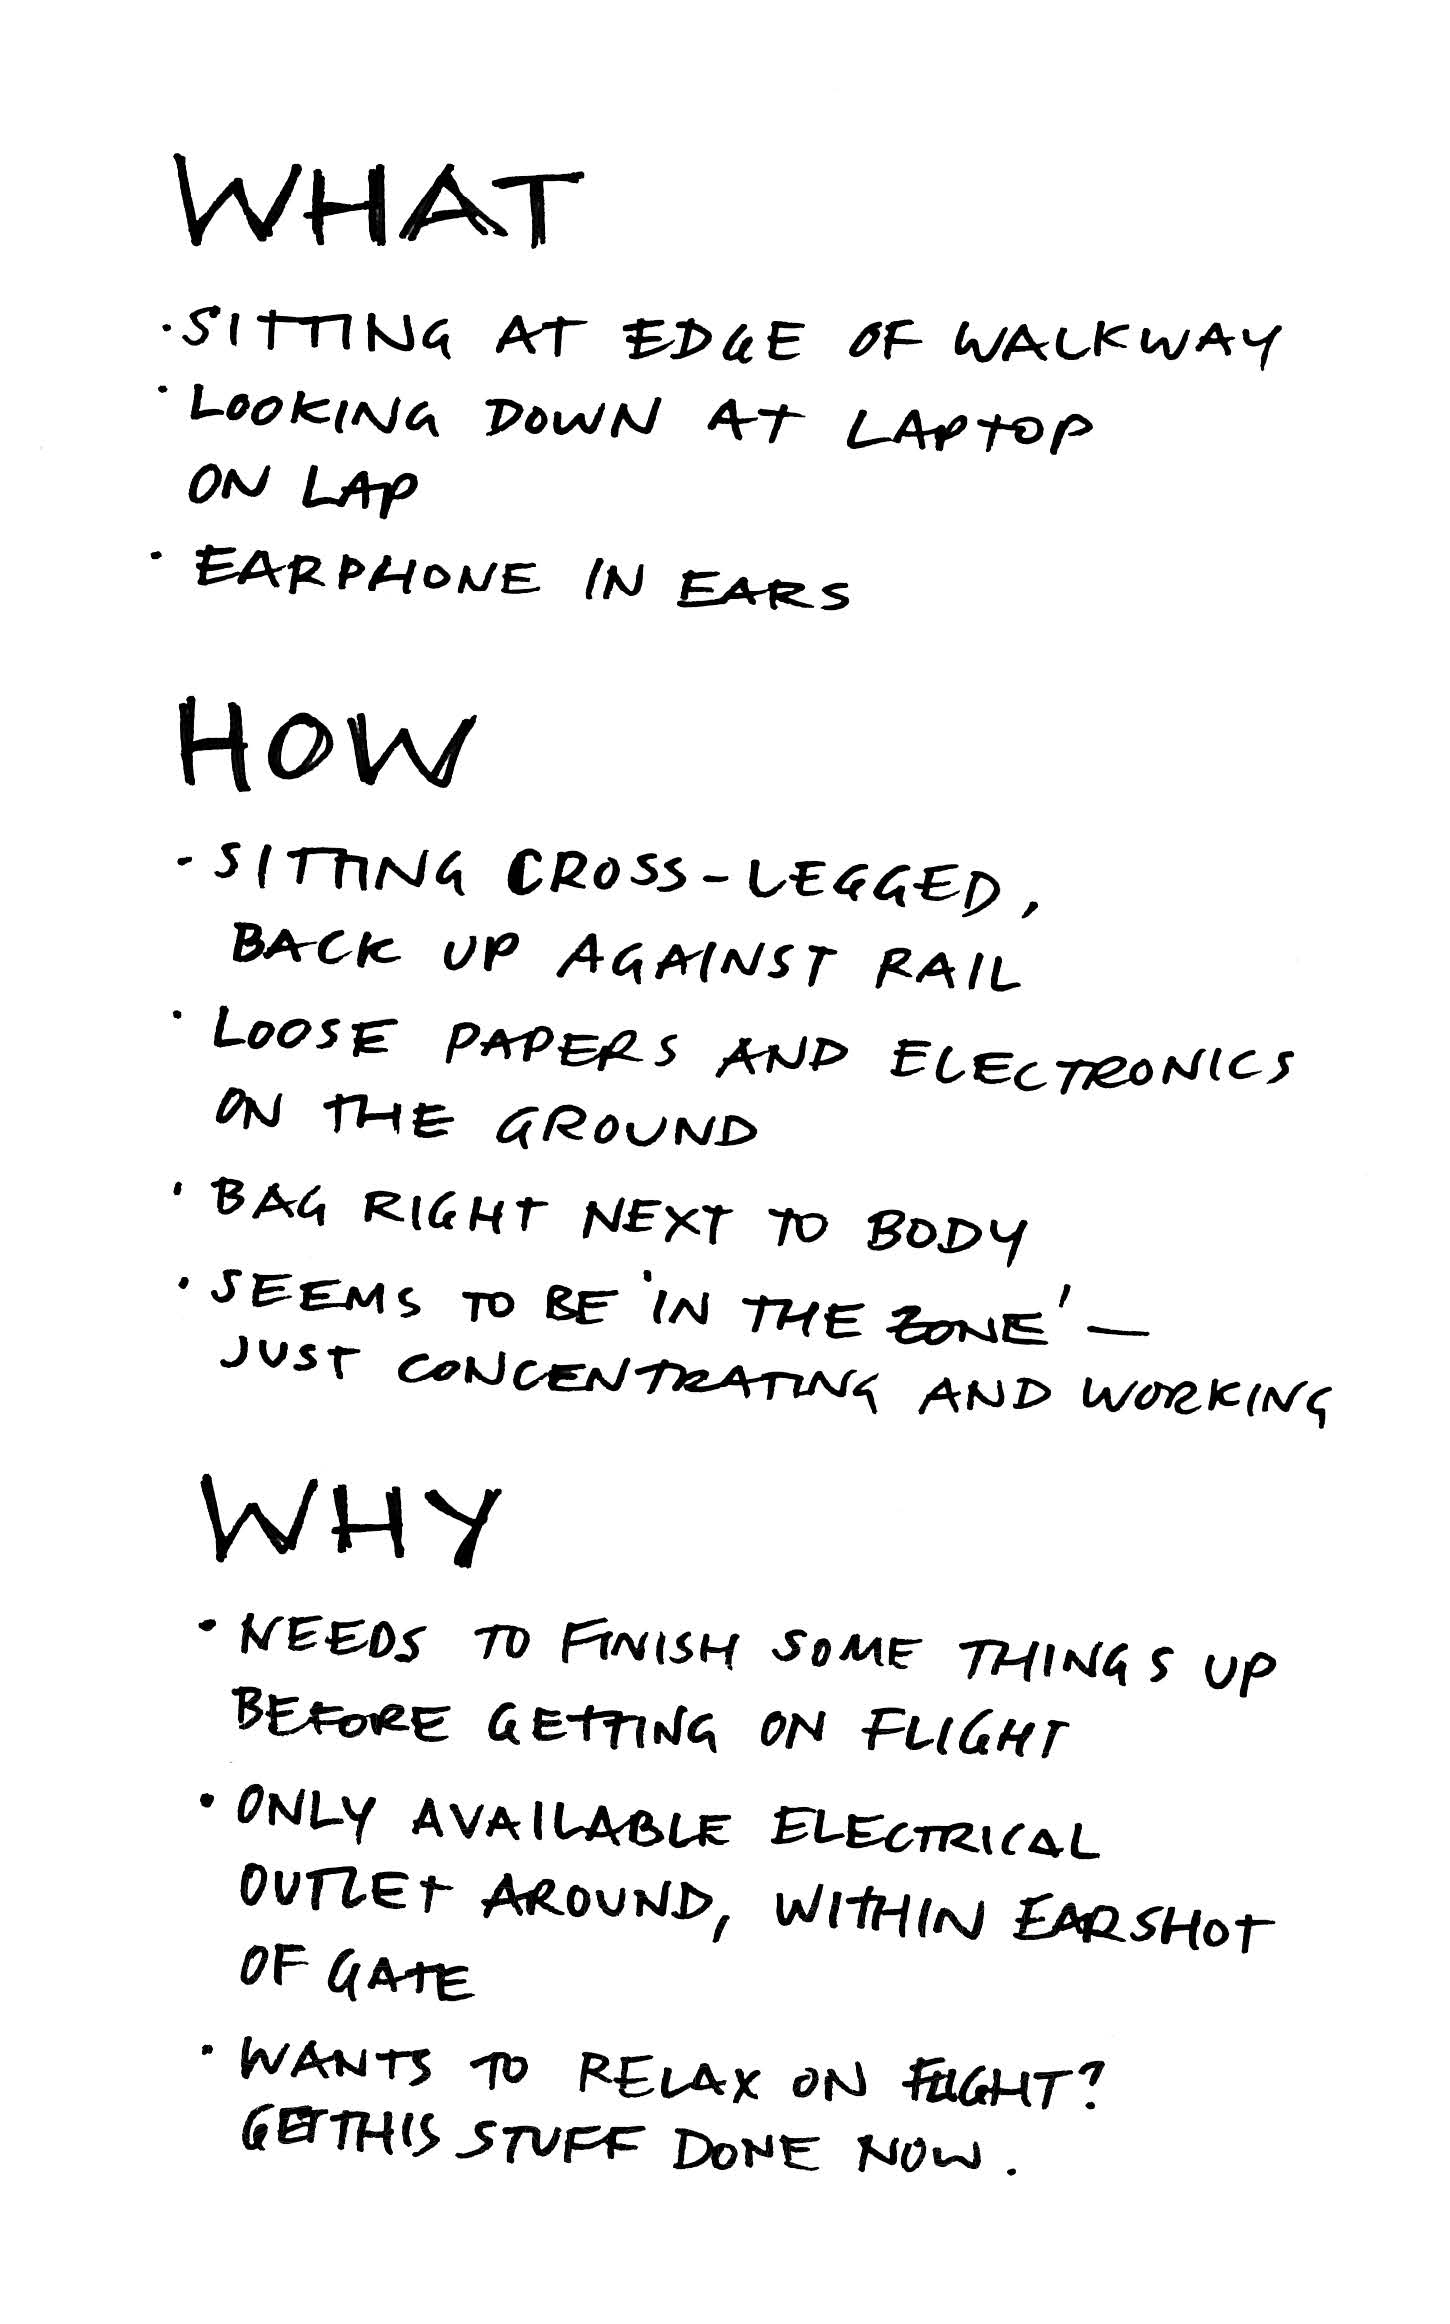 WHAT
· SITTING AT EDGE OF WALKWAY
· LOOKING DOWN AT LAPTOP
ON LAP
· EARPHONE IN EARS
HOW
· SITTING CROSS-LEGGED,
BACK UP AGAINST RAIL
· LOOSE PAPERS AND ELECTRONICS
ON THE GROUND
· BAG RIGHT NEXT TO BODY
· SEEMS TO BE 'IN THE ZONE' —
JUST CONCENTRATING AND WORKING
WHY
· NEEDS TO FINISH SOME THINGS UP
BEFORE GETTING ON FLIGHT
· ONLY AVAILABLE ELECTRICAL
OUTLET AROUND, WITHIN EARSHOT
OF GATE
· WANTS TO RELAX ON FLIGHT?
GET THIS STUFF DONE NOW.